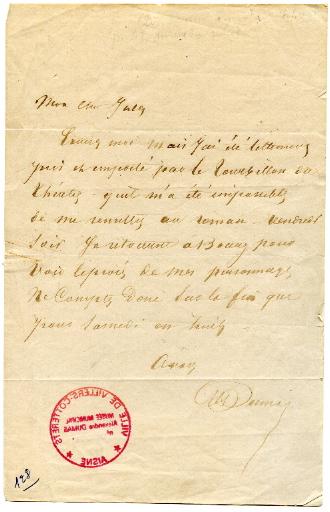 Mon cher Jules
Excusez moi mais j'ai été tellement
pris et emporté par le tourbillon du
théatre qu'il m'a été impossible
de me remettre au roman - vendredi
soir Je retourne a pour
voir le procès de mes personnages
Ne comptez donc sur la fin que
pour samedi en huit
A vous
Al Dumas
VILLE DE VILLERS-COTTERETS
MUSÉE MUNICIPAL
Alexandre DUMAS
AISNE
128